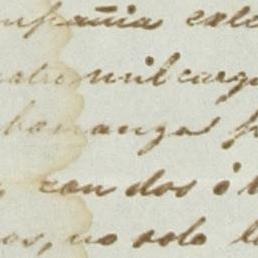 mpañia exlc
uatro mil carga
bonanzas p
con dos ó t
os, no solo l